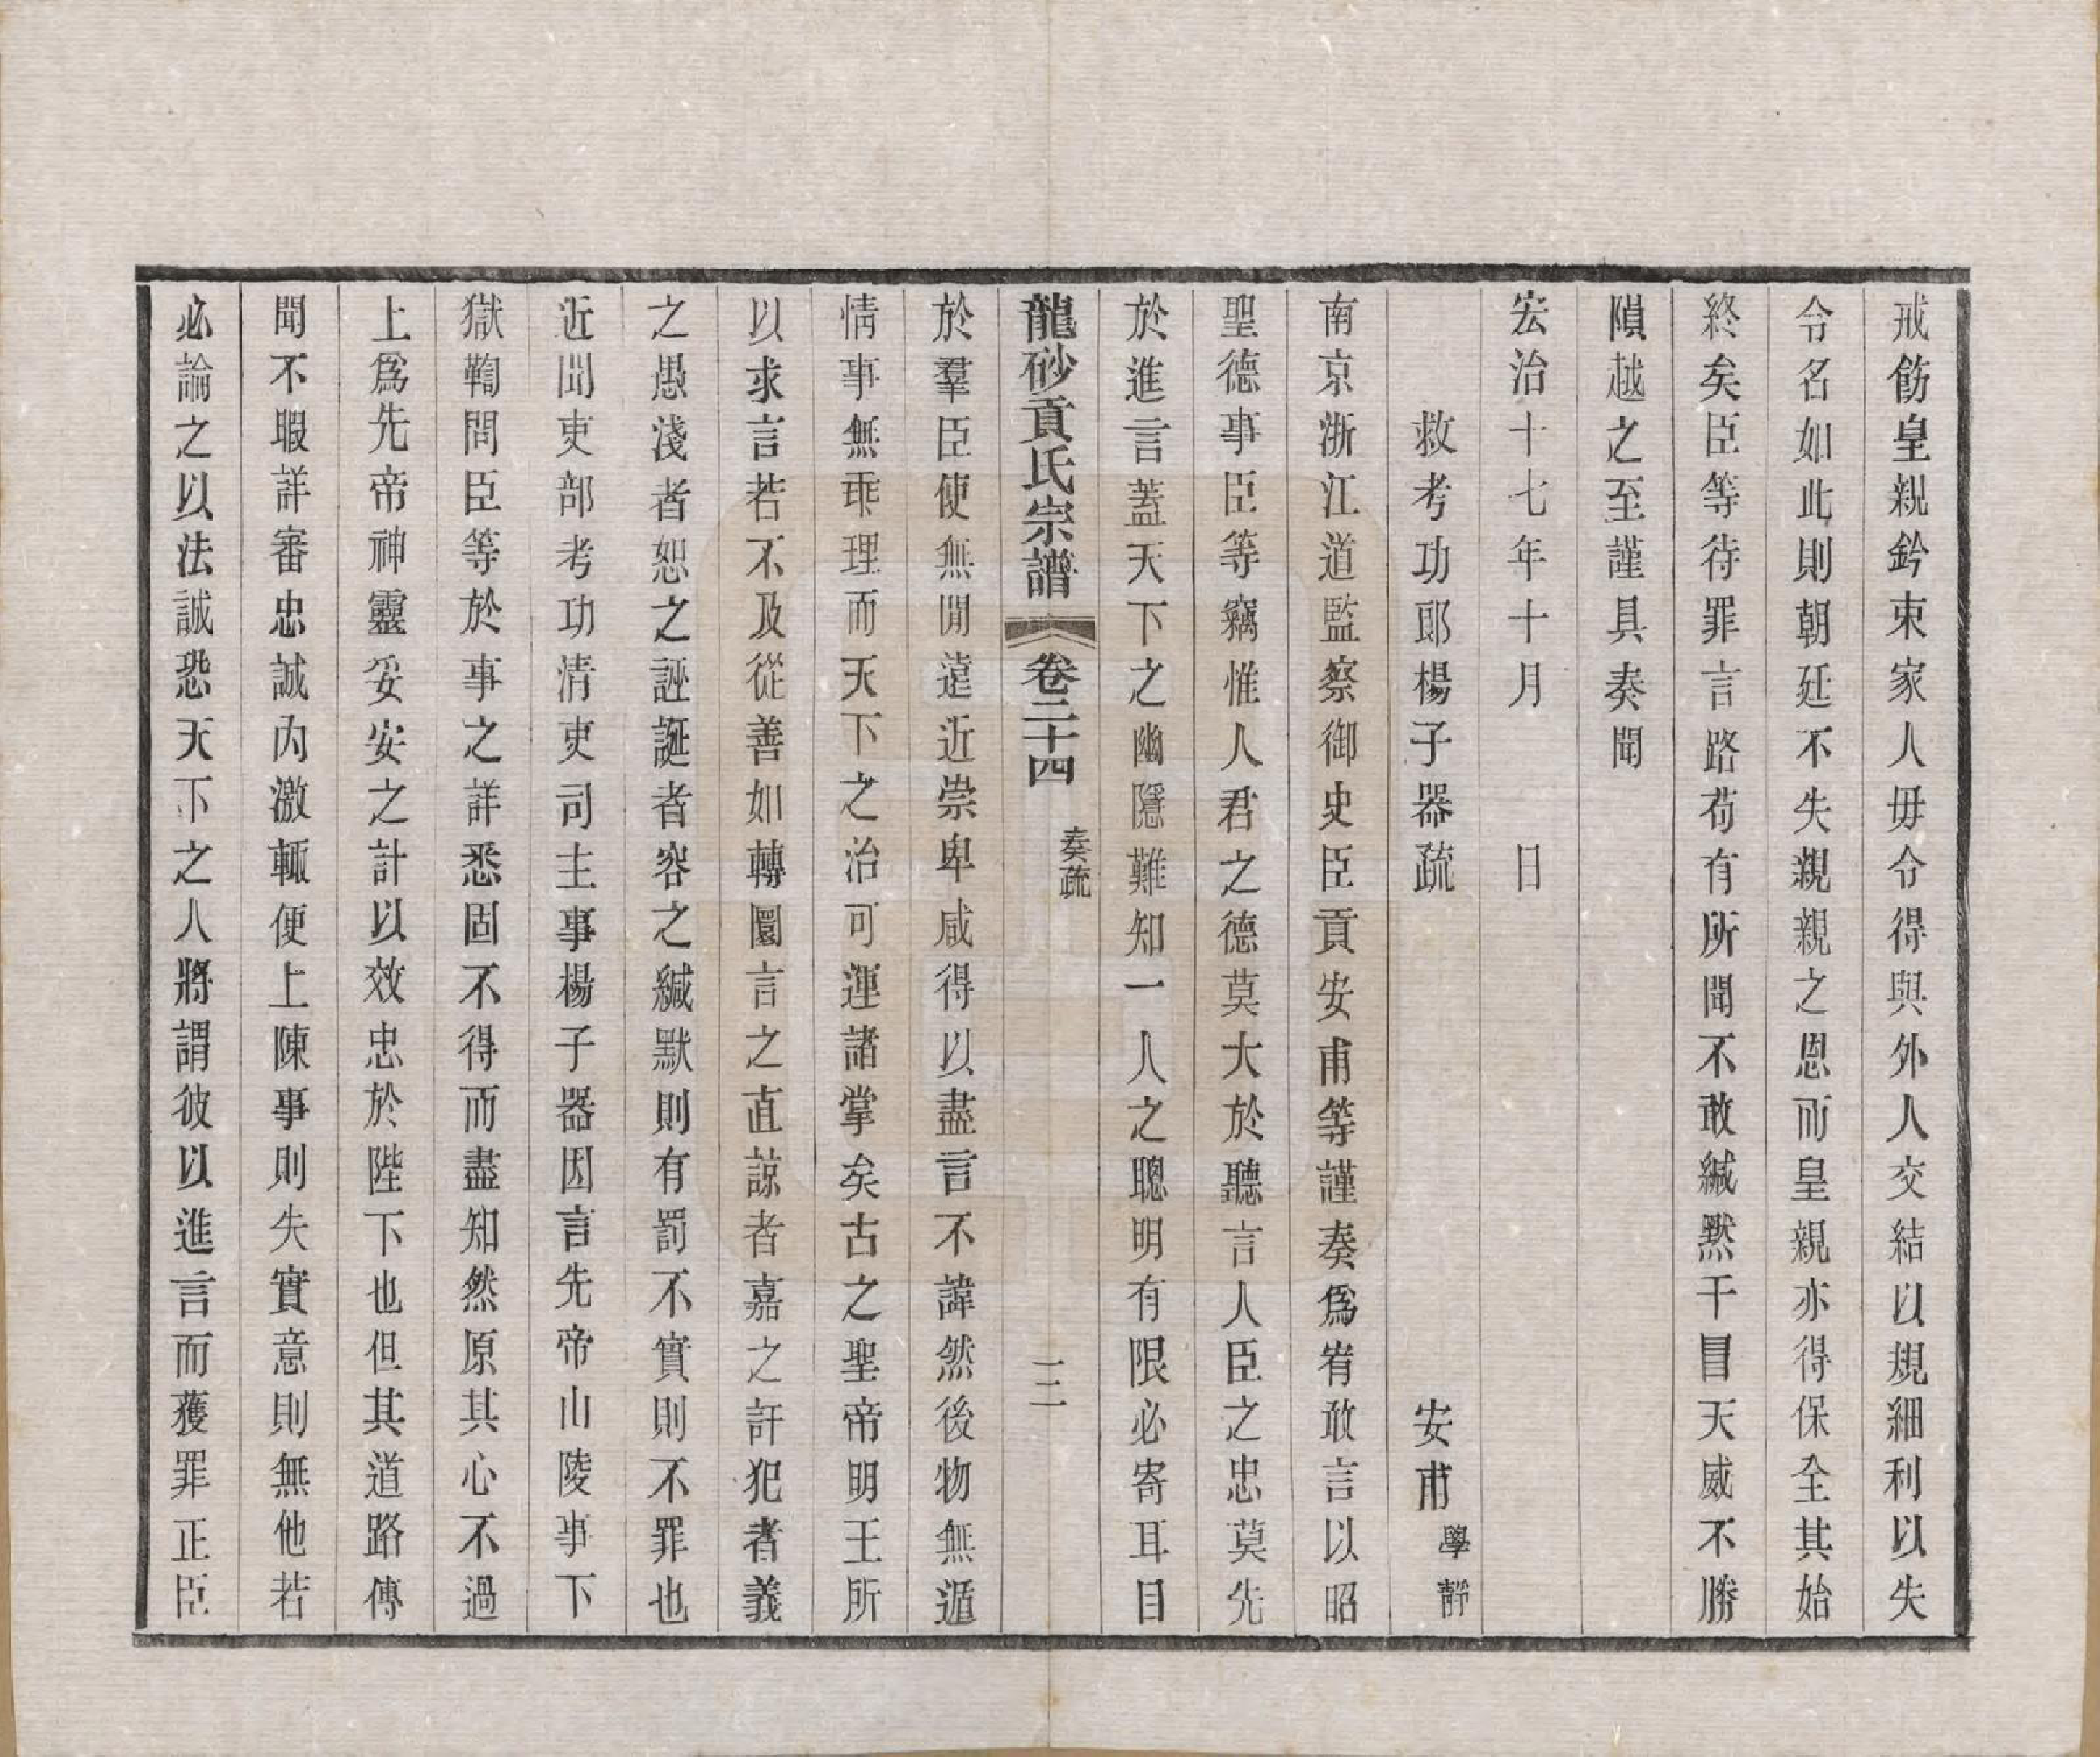 戒飭皇親鈐束家人毋令得與外人交結以規細利以失
令名如此則朝廷不失親親之恩而皇親亦得保全其始
終矣臣等待罪言路苟有所聞不敢緘默干冒天威不勝
隕越之至謹具奏聞
宏治十七年十月　　日
救考功郎楊子器疏　　　　安甫學靜
南京浙江道監察御史臣貢安甫等謹奏爲宥敢言以昭
聖德事臣等竊惟人君之德莫大於聽言人臣之忠莫先
於進言蓋天下之幽隱難知一人之聰明有限必寄耳目
龍砂貢氏宗譜　卷二十四　奏疏　三
於羣臣使無閒遠近崇卑咸得以盡言不諱然後物無遁
情事無乖理而天下之治可運諸掌矣古之聖帝明王所
以求言若不及從善如轉圜言之直諒者嘉之訐犯者義
之愚淺者恕之誣誕者容之緘默則有罰不實則不罪也
近聞吏部考功清吏司主事楊子器因言先帝山陵事下
獄鞫問臣等於事之詳悉固不得而盡知然原其心不過
上爲先帝神靈妥安之計以效忠於陛下也但其道路傳
聞不暇詳審忠誠內激輒便上陳事則失實意則無他若
必論之以法誠恐天下之人將謂彼以進言而獲罪正臣